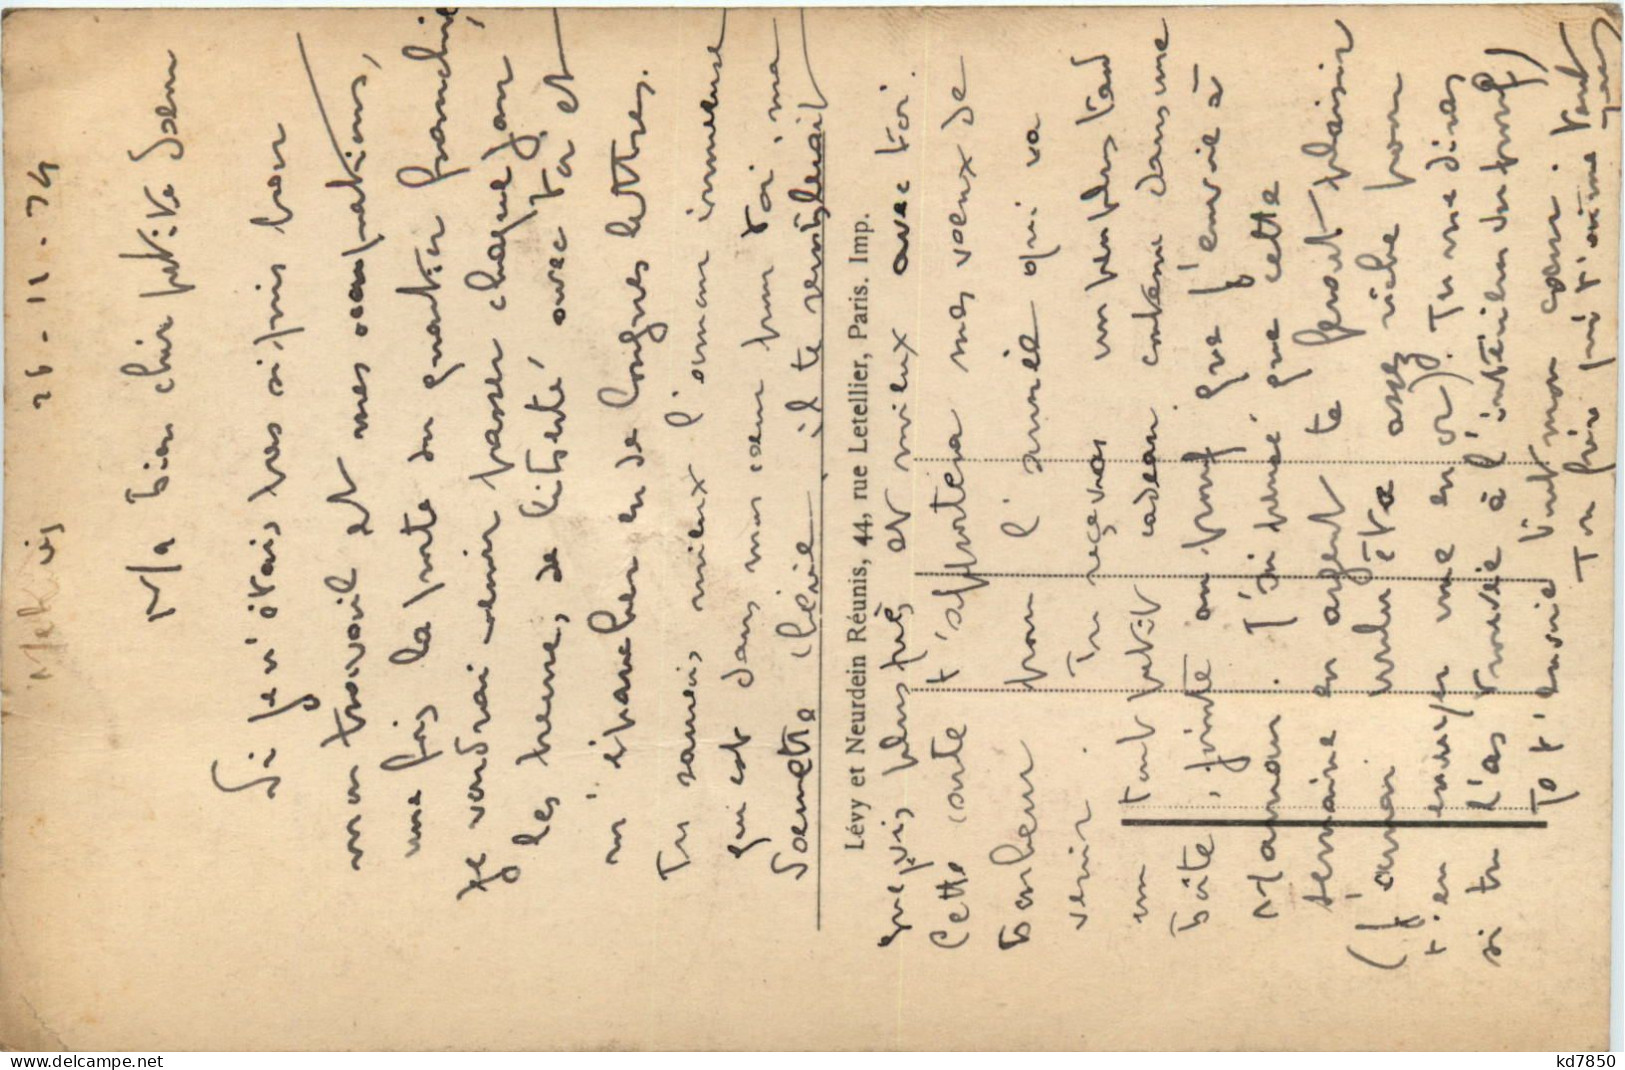 26-11-24
Ma bien chère petite Soeur
Si je n'étais pas si pris par
mon travail et mes occupations,
une fois la porte du quartier franchie,
je voudrai venir passer chaque jour
les heures de liberté avec toi et
m'épancher en de longues lettres.
Tu saurais mieux l'amour immense
qui est dans mon coeur pour toi, ma
Soeurette chérie, il te semblerait
que je vis plus près et mieux avec toi.
Cette carte t'apportera mes voeux de
bonheur pour l'année qui va
venir. Tu recevras un peu plus tard
un tout petit cadeau contenu dans une
boîte, jointe au que j'envoie à
Maman. J'ai pensé que cette
semaine en argent te ferait plaisir
(j'aurai voulu être assez riche pour
t'en envoyer une en or). Tu me diras
si tu l'as trouvée à l'intérieur du )
Je t'envoie tout mon coeur. Tout
Ton frère qui t'aime
Lévy et Neurdein Réunis, 44, rue Letellier, Paris. Imp.
www.delcampe.net
kd7850